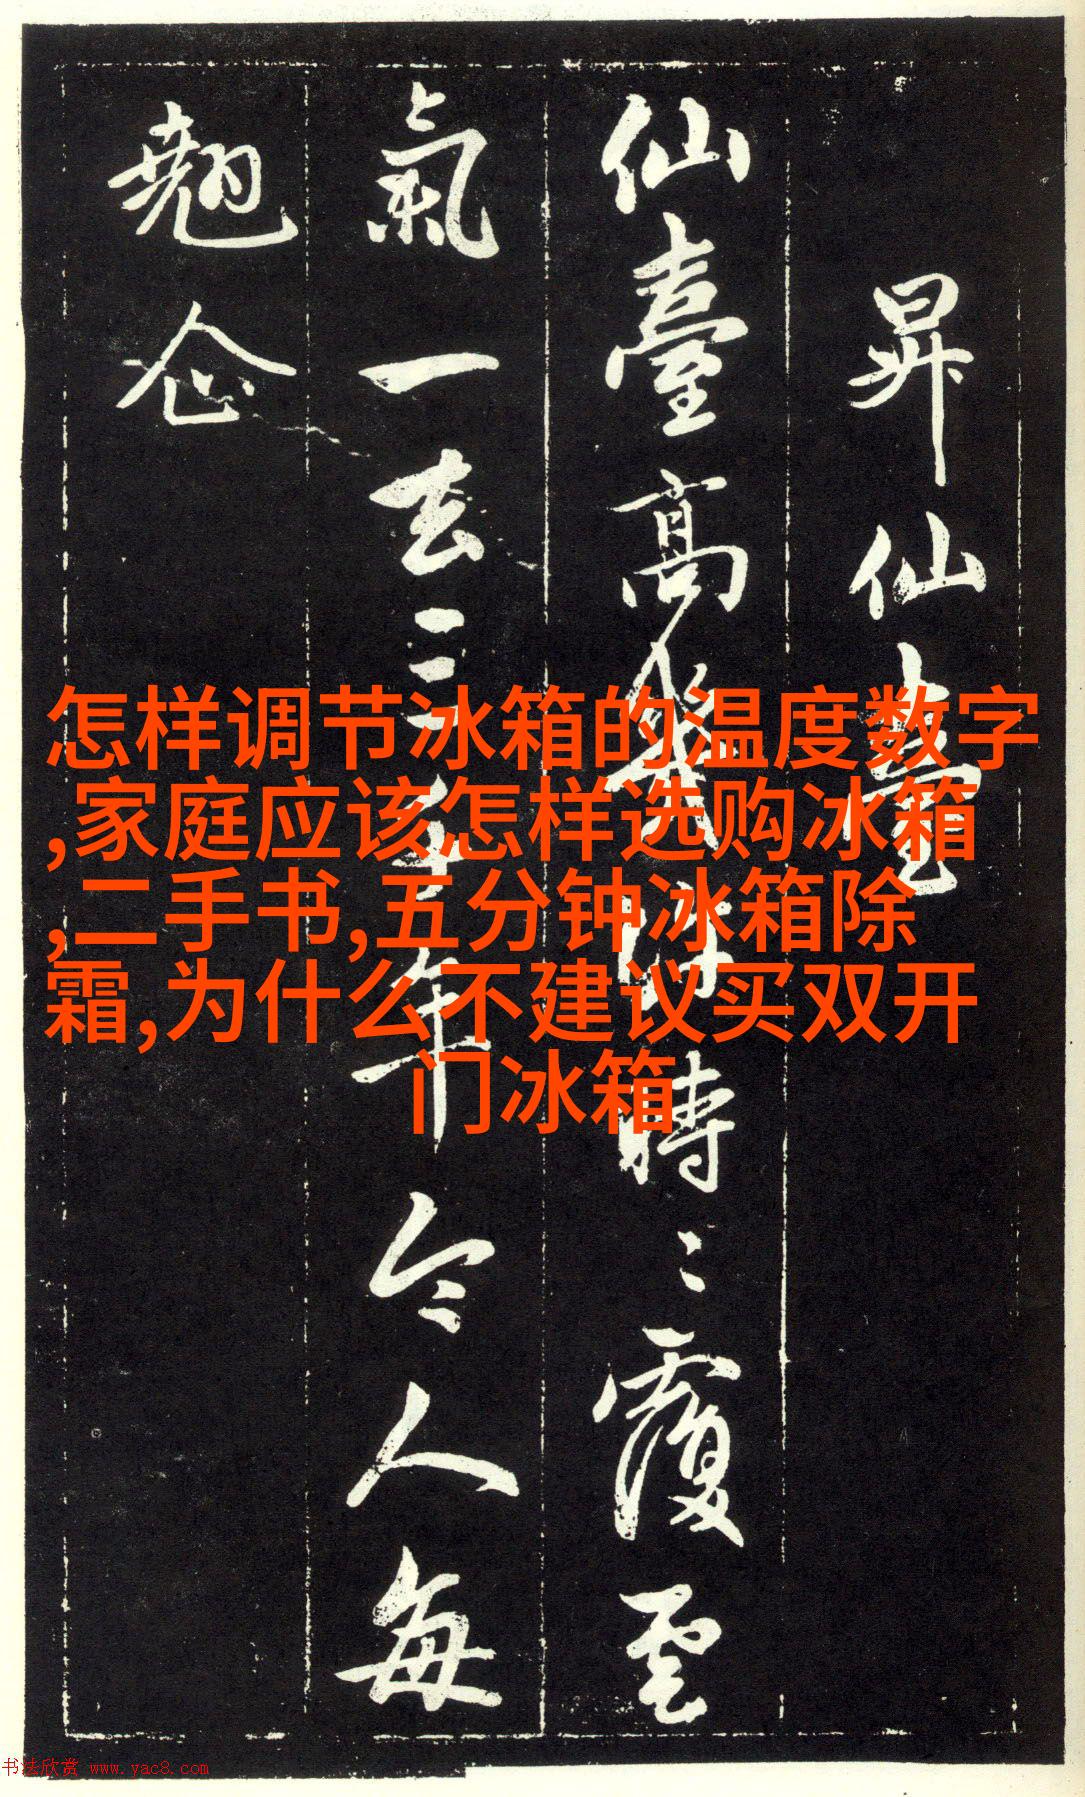 昇仙臺
仙臺高幾許時〻覆雲
氣一去三千年令人每
翹企
怎样调节冰箱的温度数字
,家庭应该怎样选购冰箱
,二手书,五分钟冰箱除
霜,为什么不建议买双开
门冰箱
书法欣赏 www.yac8.com